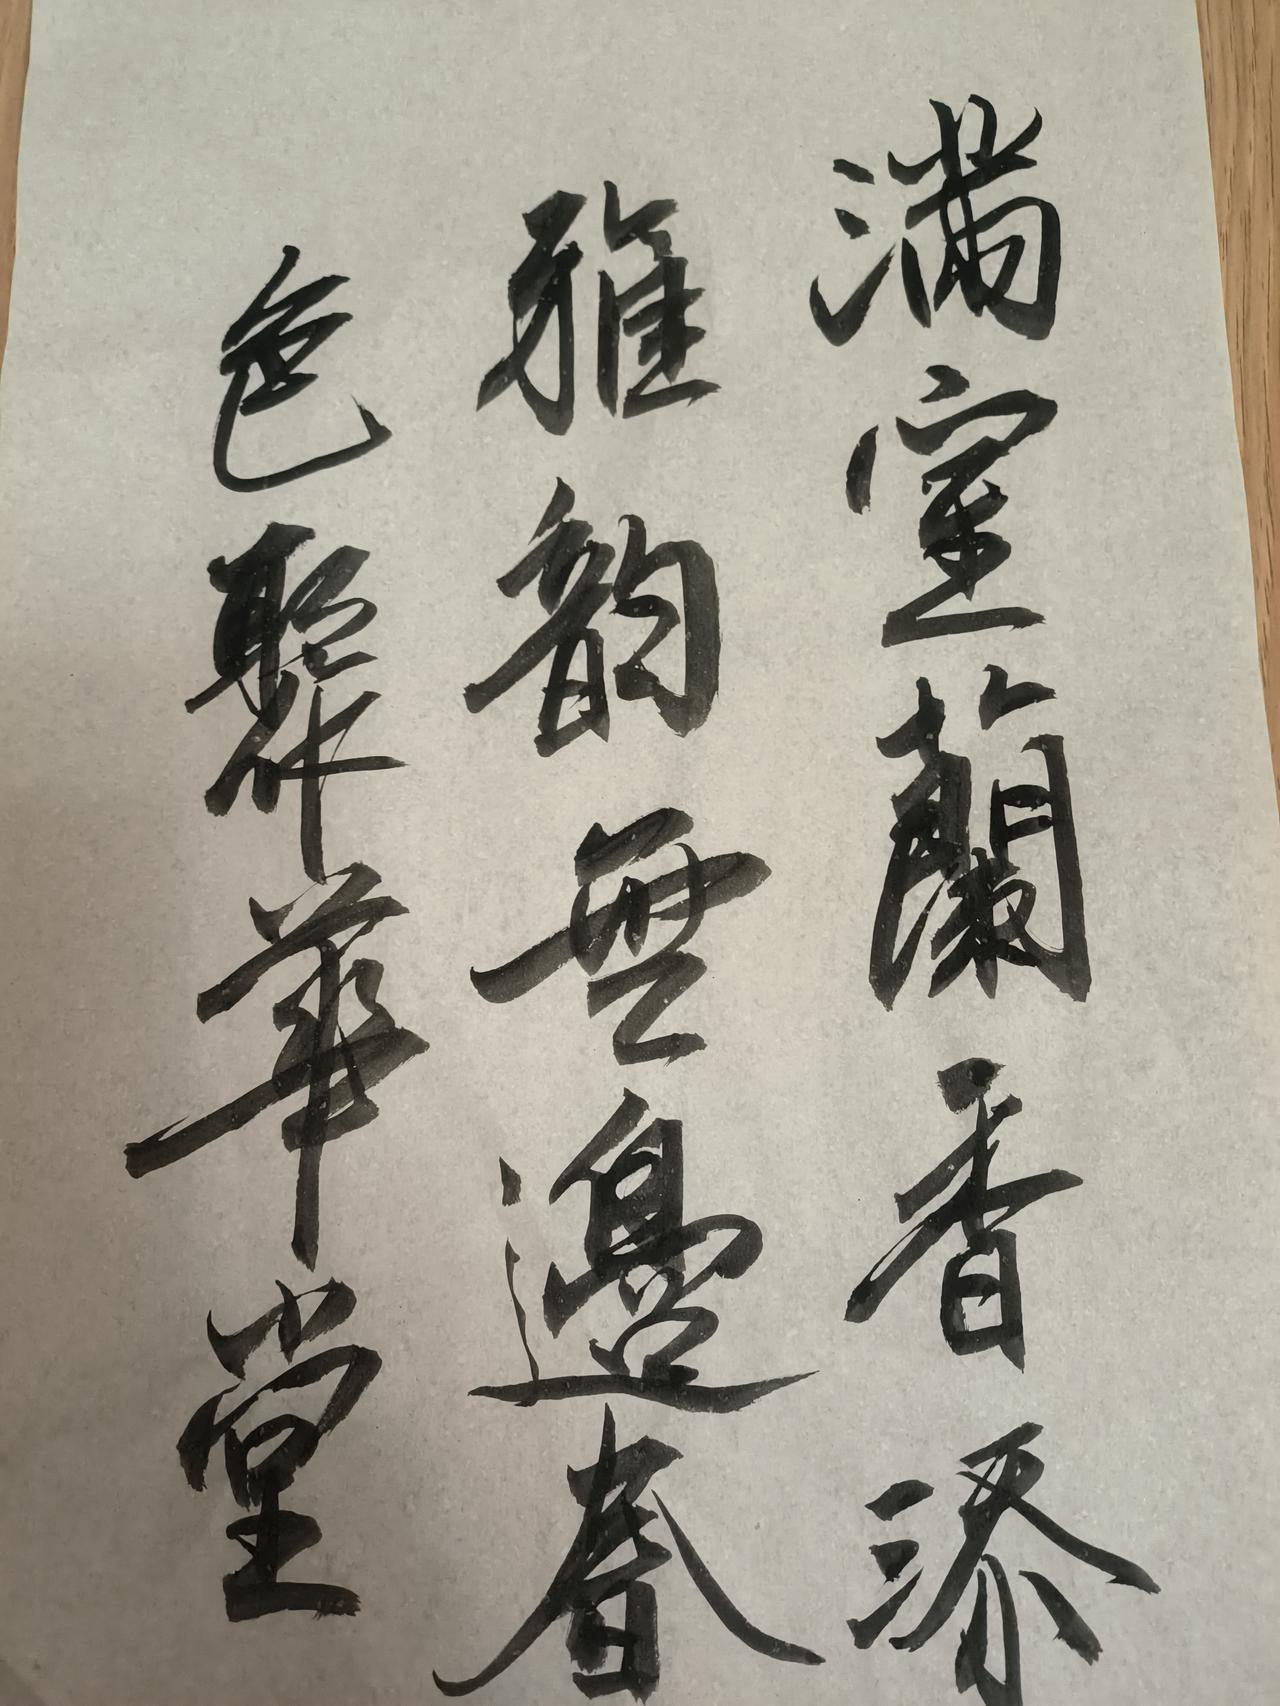 满室蘭香添
雅韵無邊春
色聚華堂